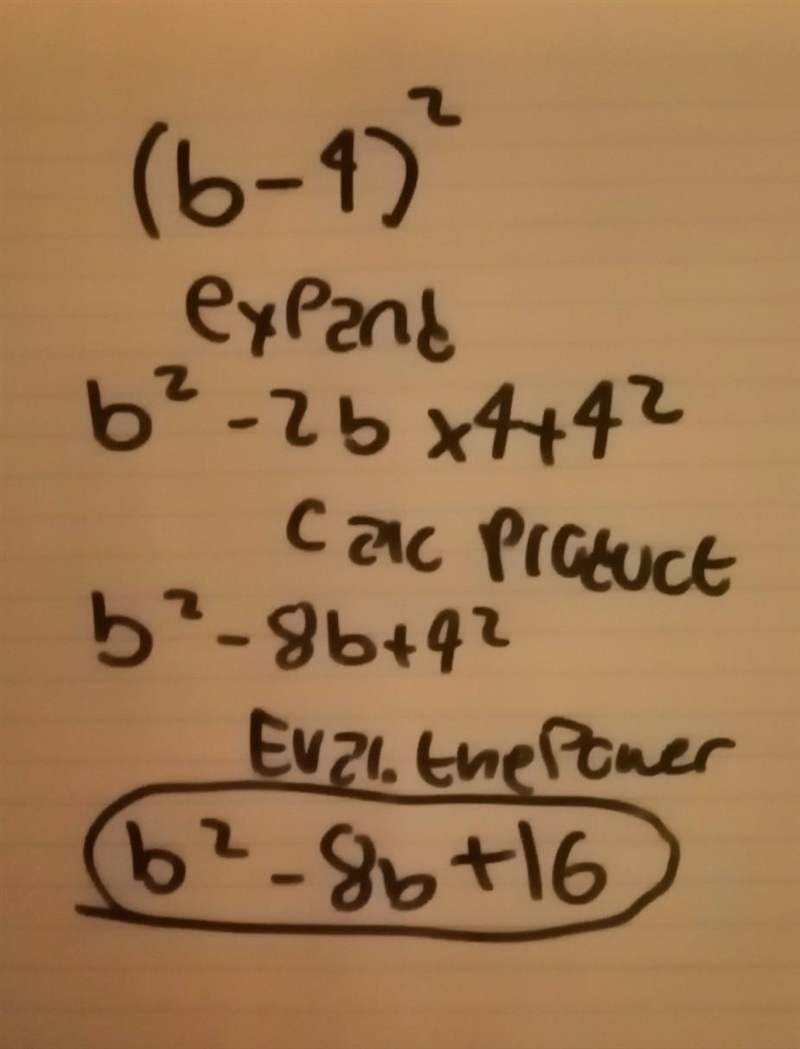 (b-4)²
expand
b² - 2b x4+4²
Calc Product
b² - 8b+4²
Eval. the Power
b² - 8b +16